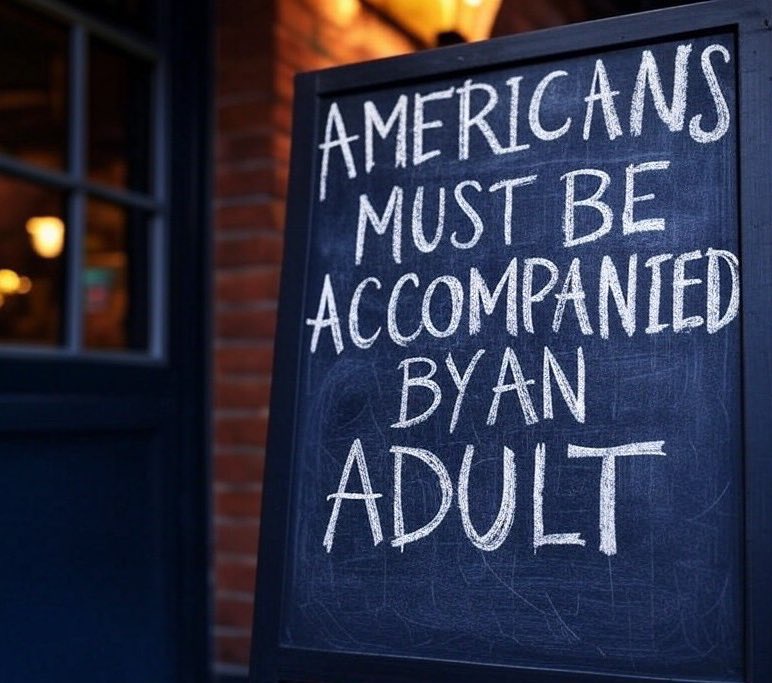 AMERICANS
MUST BE
ACCOMPANIED
BY AN
ADULT